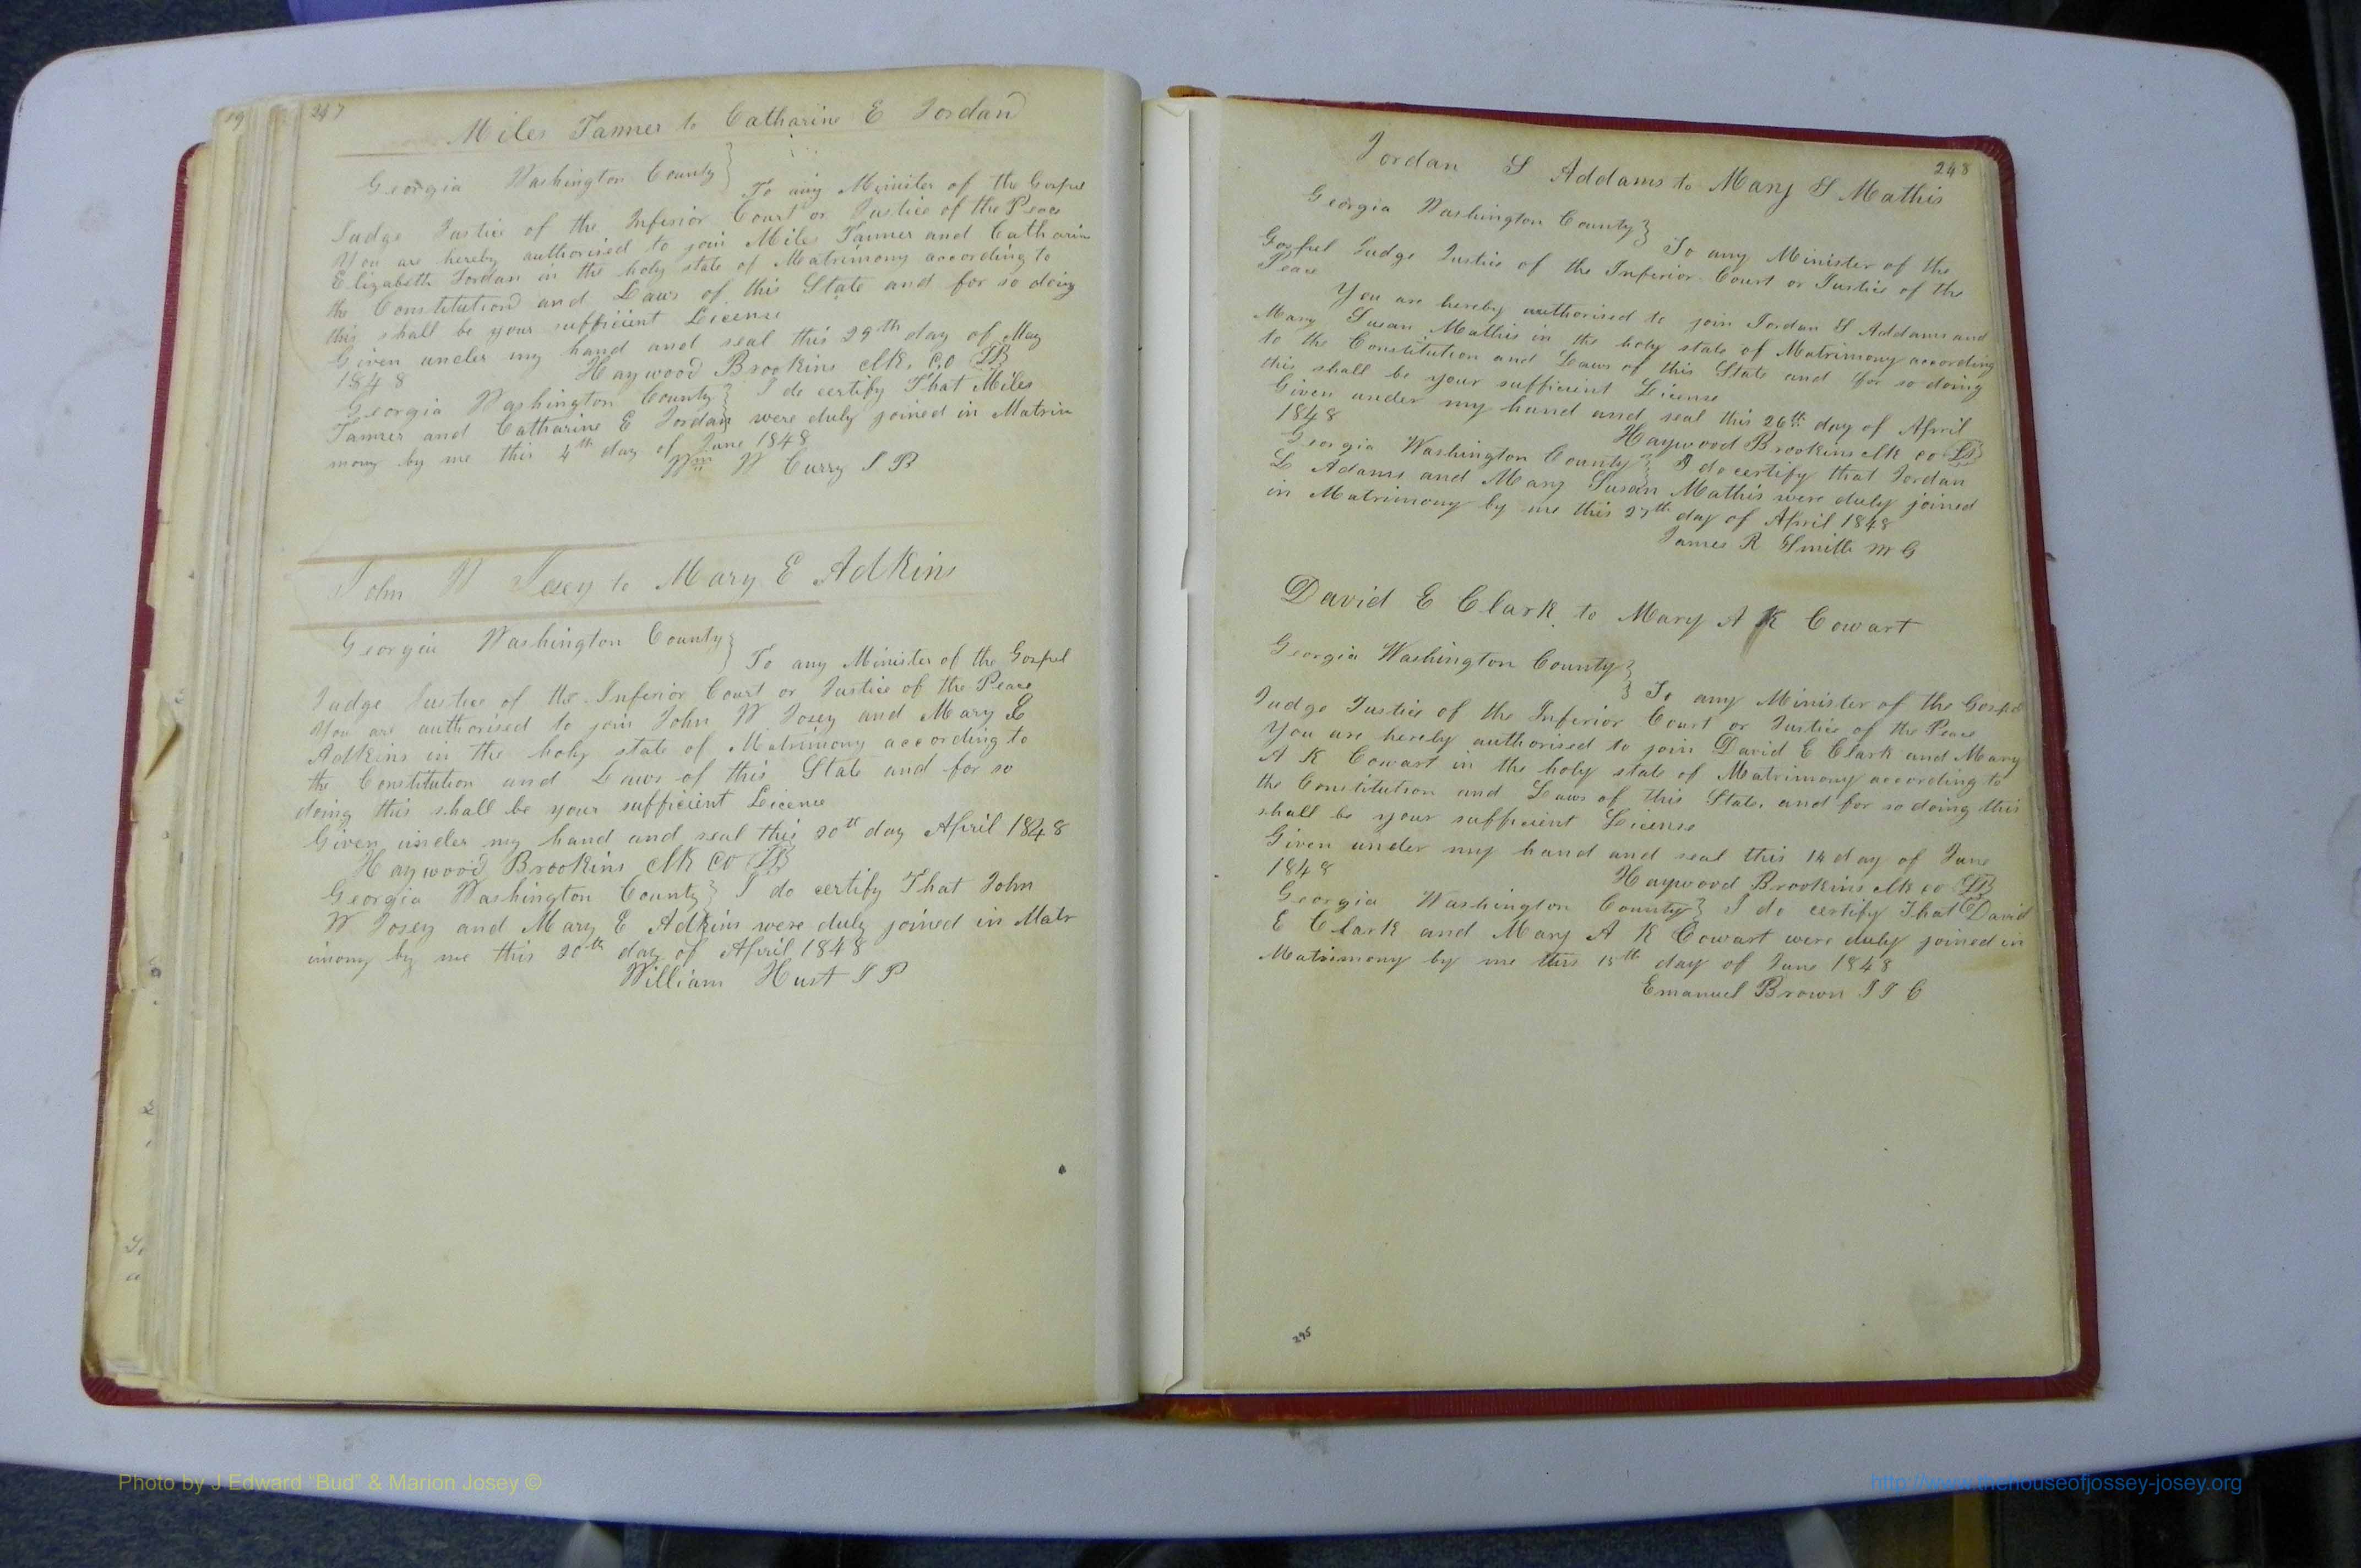 19
247
Miles Tanner to Catharine E Jordan
Georgia Washington County } To any Minister of the Gospel
Judge Justice of the Inferior Court or Justice of the Peace
You are hereby authorised to join Miles Tanner and Catharin
Elizabeth Jordan in the holy state of Matrimony according to
the Constitution and Laws of this State and for so doing
this shall be your sufficient License
Given under my hand and seal this 29th day of May
1848 Haywood Brookins clk co
Georgia Washington County } I do certify That Miles
Tanner and Catharine E Jordan were duly joined in Matri
mony by me this 4th day of June 1848
Wm W Curry J P
John W Josey to Mary E Adkins
Georgia Washington County } To any Minister of the Gospel
Judge Justice of the Inferior Court or Justice of the Peace
You are authorised to join John W Josey and Mary E
Adkins in the holy state of Matrimony according to
the Constitution and Laws of this State and for so
doing this shall be your sufficient License
Given under my hand and seal this 20th day April 1848
Haywood Brookins clk co
Georgia Washington County } I do certify That John
W Josey and Mary E Adkins were duly joined in Matr
imony by me this 20th day of April 1848
William Hust J P
248
Jordan S Addams to Mary S Mathis
Georgia Washington County } To any Minister of the
Gospel Judge Justice of the Inferior Court or Justice of the
Peace
You are hereby authorised to join Jordan S Addams and
Mary Susan Mathis in the holy state of Matrimony according
to the Constitution and Laws of this State and for so doing
this shall be your sufficient License
Given under my hand and seal this 26th day of April
1848 Haywood Brookins clk co
Georgia Washington County } I do certify that Jordan
L Adams and Mary Susan Mathis were duly joined
in Matrimony by me this 27th day of April 1848
James R Smith M G
David E Clark to Mary A K Cowart
Georgia Washington County } To any Minister of the Gospel
Judge Justice of the Inferior Court or Justice of the Peace
You are hereby authorised to join David E Clark and Mary
A K Cowart in the holy state of Matrimony according to
the Constitution and Laws of this State, and for so doing this
shall be your sufficient License
Given under my hand and seal this 14 day of June
1848 Haywood Brookins clk co
Georgia Washington County } I do certify That David
E Clark and Mary A K Cowart were duly joined in
Matrimony by me this 15th day of June 1848
Emanuel Brown J I C
295
Photo by J Edward “Bud” & Marion Josey ©
http://www.thehouseofjossey-josey.org